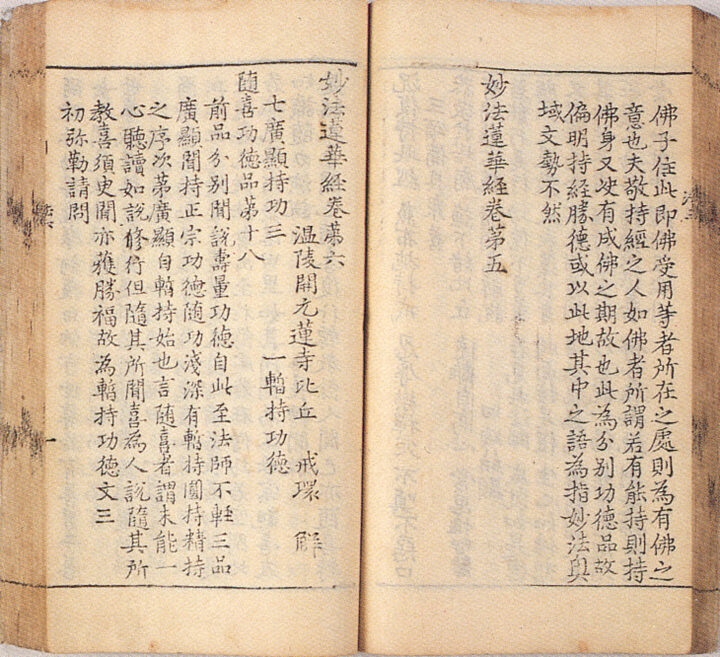 佛子住此即佛受用等者所在之處則為有佛之
意也夫敬持經之人如佛者所謂若有能持則持
佛身又必有成佛之期故也此為分別功德品故
偏明持經勝德或以此地其中之語為指妙法與
域文勢不然
妙法蓮華經卷第五
妙法蓮華經卷第六
温陵開元蓮寺比丘 戒環 解
七廣顯持功三 一暫持功德
隨喜功德品第十八
前品分别聞說壽量功德自此至法師不輕三品
廣顯聞持正宗功德隨功淺深有暫持圓持精持
之序次第廣顯自暫持始也言隨喜者謂未能一
心聽讀如說修行但隨其所聞喜為人說隨其所
教喜須臾聞亦獲勝福故為暫持功德文三
初弥勒請問
一